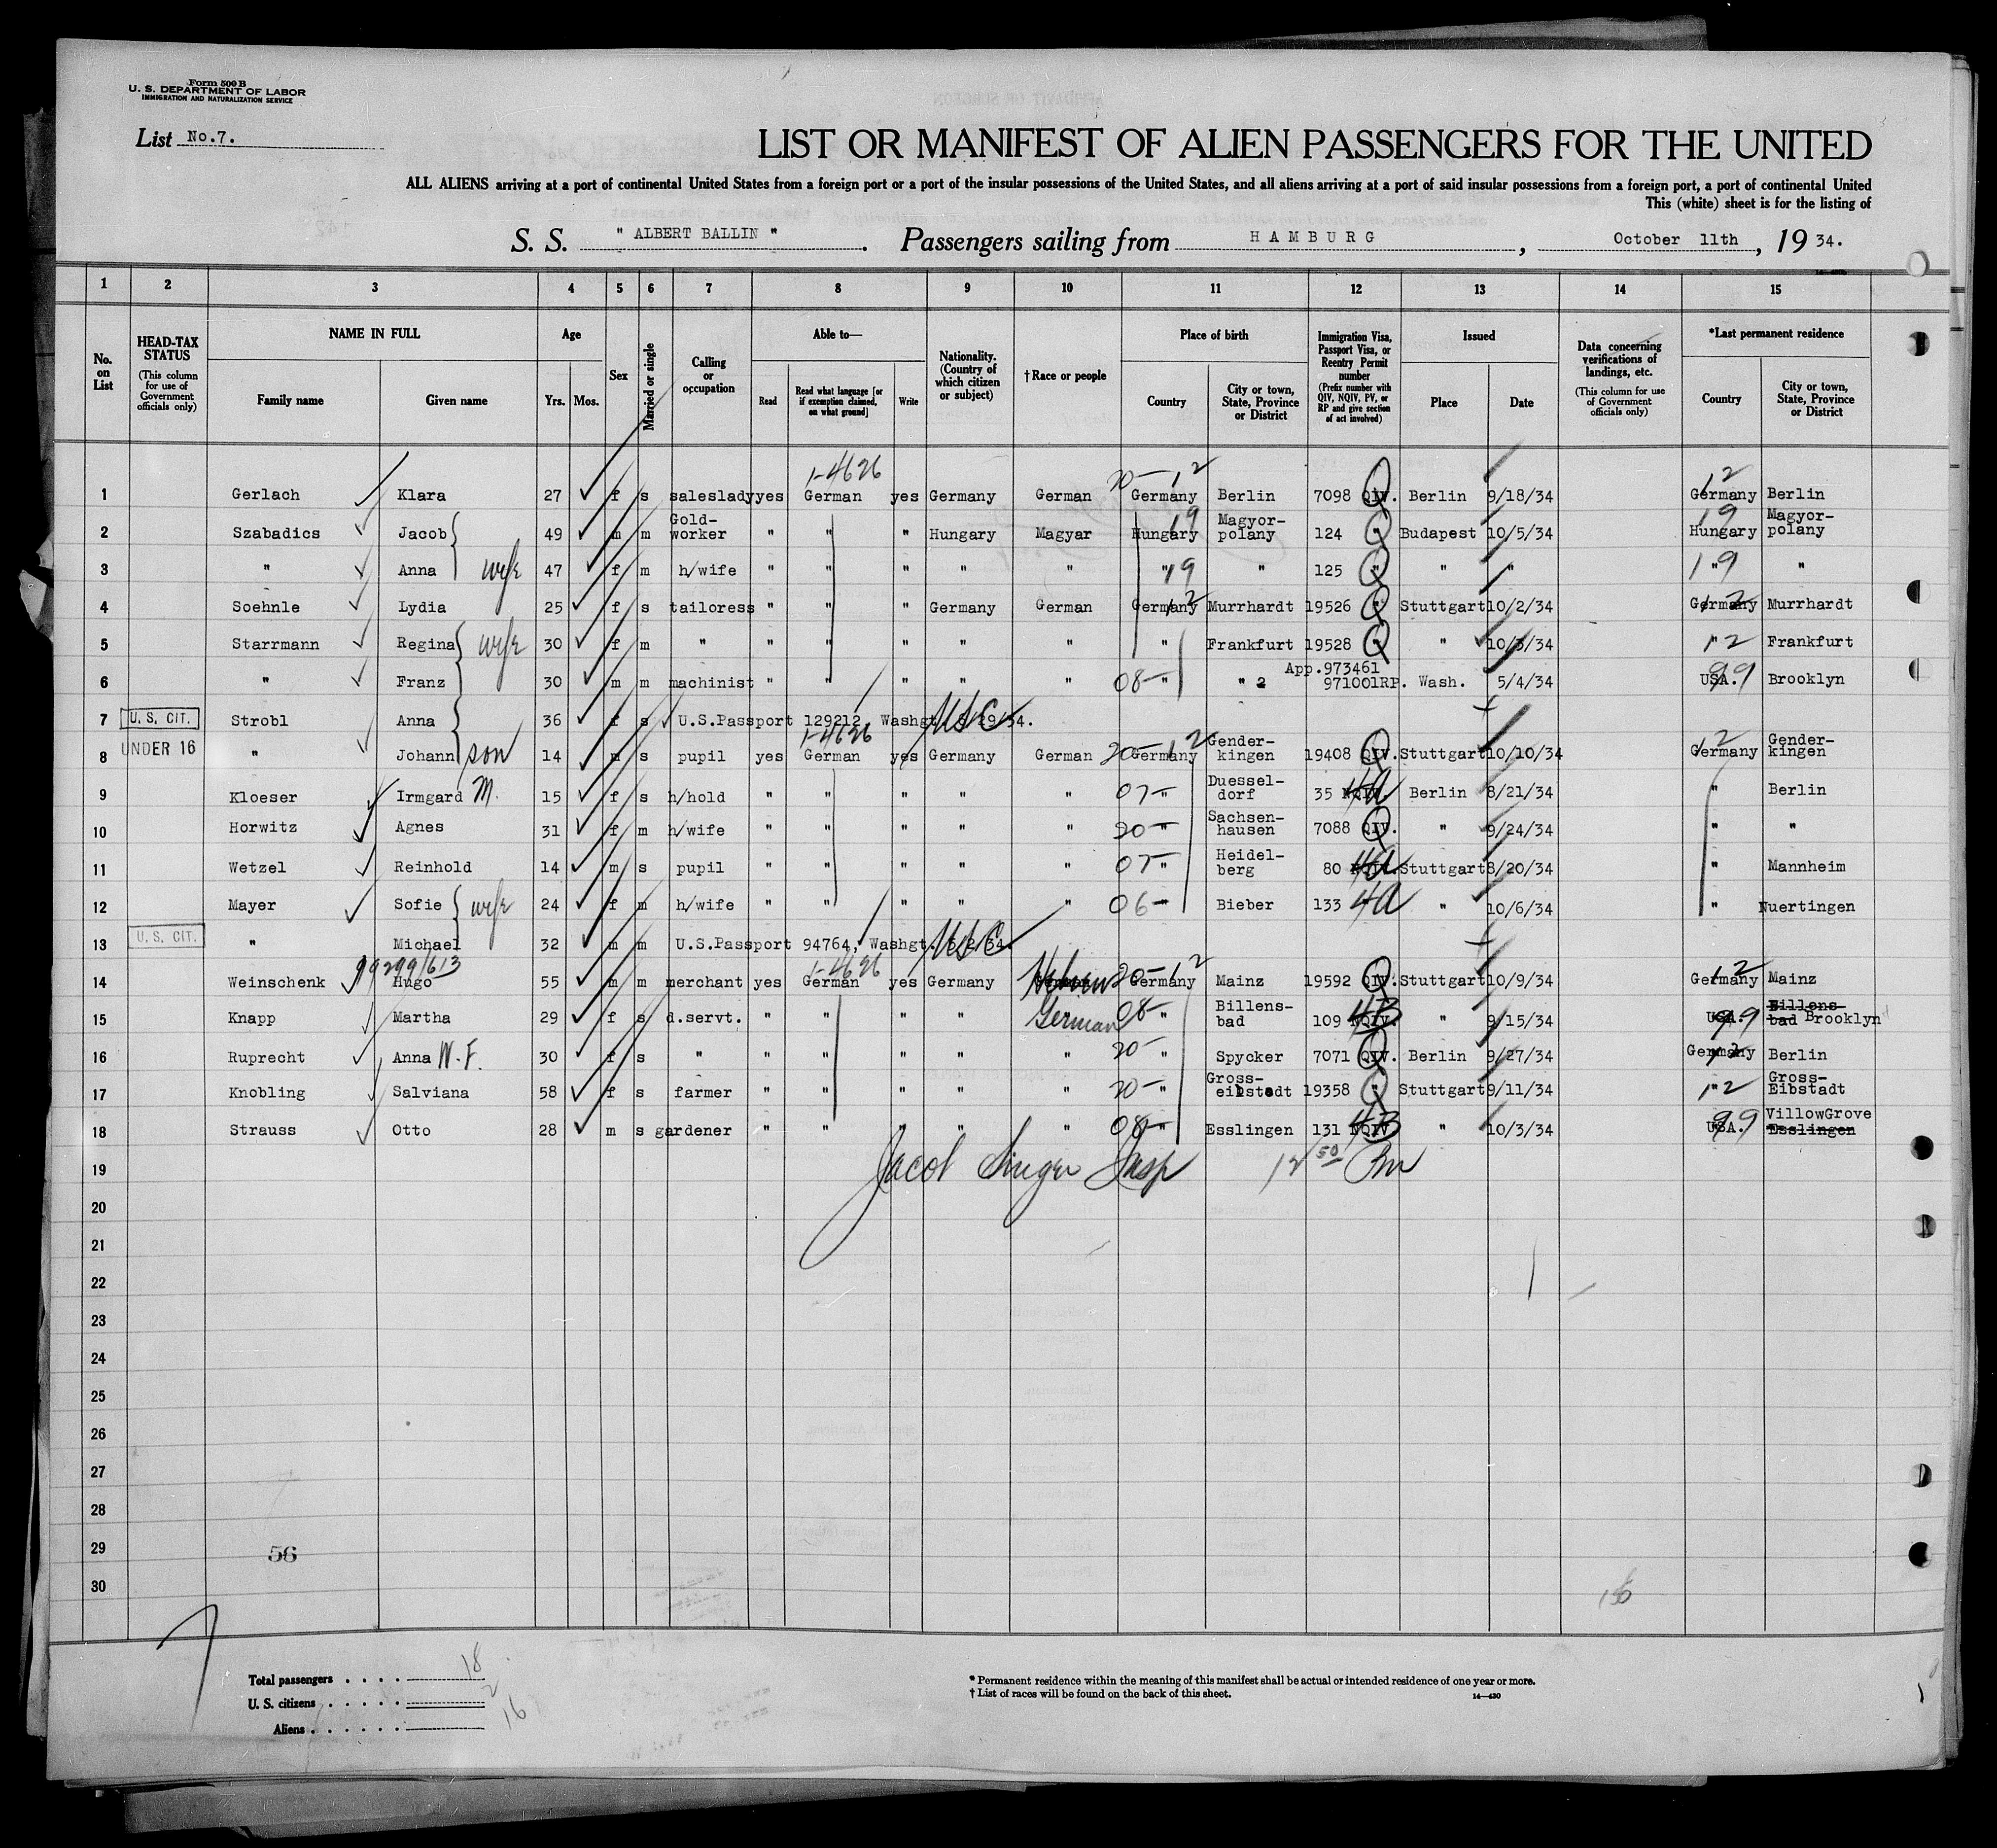 Form 500 B
U. S. DEPARTMENT OF LABOR
IMMIGRATION AND NATURALIZATION SERVICE
List No.7.
LIST OR MANIFEST OF ALIEN PASSENGERS FOR THE UNITED
ALL ALIENS arriving at a port of continental United States from a foreign port or a port of the insular possessions of the United States, and all aliens arriving at a port of said insular possessions from a foreign port, a port of continental United
This (white) sheet is for the listing of
S. S. " ALBERT BALLIN " . Passengers sailing from HAMBURG , October 11th , 19 34.
1 2 3 4 5 6 7 8 9 10 11 12 13 14 15
No. on List
HEAD-TAX STATUS (This column for use of Government officials only)
NAME IN FULL Family name Given name
Age Yrs. Mos.
Sex
Married or single
Calling or occupation
Able to— Read Read what language [or if exemption claimed, on what ground] Write
Nationality. (Country of which citizen or subject)
† Race or people
Place of birth Country City or town, State, Province or District
Immigration Visa, Passport Visa, or Reentry Permit number (Prefix number with QIV, NQIV, PV, or RP and give section of act involved)
Issued Place Date
Data concerning verifications of landings, etc. (This column for use of Government officials only)
*Last permanent residence Country City or town, State, Province or District
1-4626 20- 12 12
1 Gerlach Klara 27 f s saleslady yes German yes Germany German Germany Berlin 7098 QIV. Q Berlin 9/18/34 Germany Berlin
2 Szabadics Jacob 49 m m Gold-worker " " " Hungary Magyar Hungary 19 Magyor-polany 124 " Q Budapest 10/5/34 Hungary 19 Magyor-polany
3 " Anna wife 47 f m h/wife " " " " " " 19 " 125 " Q " " " 19 "
4 Soehnle Lydia 25 f s tailoress " " " Germany German Germany 12 Murrhardt 19526 " Q Stuttgart 10/2/34 Germany 12 Murrhardt
5 Starrmann Regina wife 30 f m " " " " " " " Frankfurt 19528 Q " 10/3/34 " 12 Frankfurt
6 " Franz 30 m m machinist " " " " " 08- " " 2 App.973461 971001RP. Wash. 5/4/34 USA. 99 Brooklyn
7 U. S. CIT. Strobl Anna 36 f s U.S.Passport 129212, Washgt. 5/29/34. USC
8 UNDER 16 " Johann son 14 m s pupil yes German 1-4626 yes Germany German 20- Germany 12 Gender-kingen 19408 QIV. Q Stuttgart 10/10/34 Germany 12 Gender-kingen
9 Kloeser Irmgard M. 15 f s h/hold " " " " " 07- " Duessel-dorf 35 NQIV. 4a Berlin 8/21/34 " Berlin
10 Horwitz Agnes 31 f m h/wife " " " " " 20- " Sachsen-hausen 7088 QIV. Q " 9/24/34 " "
11 Wetzel Reinhold 14 m s pupil " " " " " 07- " Heidel-berg 80 NQIV. 4a Stuttgart 8/20/34 " Mannheim
12 Mayer Sofie wife 24 f m h/wife " " " " " 06- " Bieber 133 4a " 10/6/34 " Nuertingen
13 U. S. CIT. " Michael 32 m m U.S.Passport 94764, Washgt. 5/2/34. USC
99299/613
14 Weinschenk Hugo 55 m m merchant yes German 1-4626 yes Germany Hebrew 20- Germany 12 Mainz 19592 QIV. Q Stuttgart 10/9/34 Germany 12 Mainz
15 Knapp Martha 29 f s d.servt. " " " " German 08- " Billens-bad 109 NQIV. 4B " 9/15/34 USA. 99 Billens-bad Brooklyn
16 Ruprecht Anna W.F. 30 f s " " " " " " 20- " Spycker 7071 QIV. Q Berlin 9/27/34 Germany 12 Berlin
17 Knobling Salviana 58 f s farmer " " " " " 20- " Gross-eibstadt 19358 " Q Stuttgart 9/11/34 " 12 Gross-Eibstadt
18 Strauss Otto 28 m s gardener " " " " " 08- " Esslingen 131 NQIV 4B " 10/3/34 USA. 99 VillowGrove Esslingen
19 Jacob Singer Insp 12 50 Pm
20
21
22
23
24
25
26
27
28
29
56
30
Total passengers . . . . 18
U. S. citizens . . . . . 2
Aliens . . . . . . 16
* Permanent residence within the meaning of this manifest shall be actual or intended residence of one year or more.
† List of races will be found on the back of this sheet.
14—430